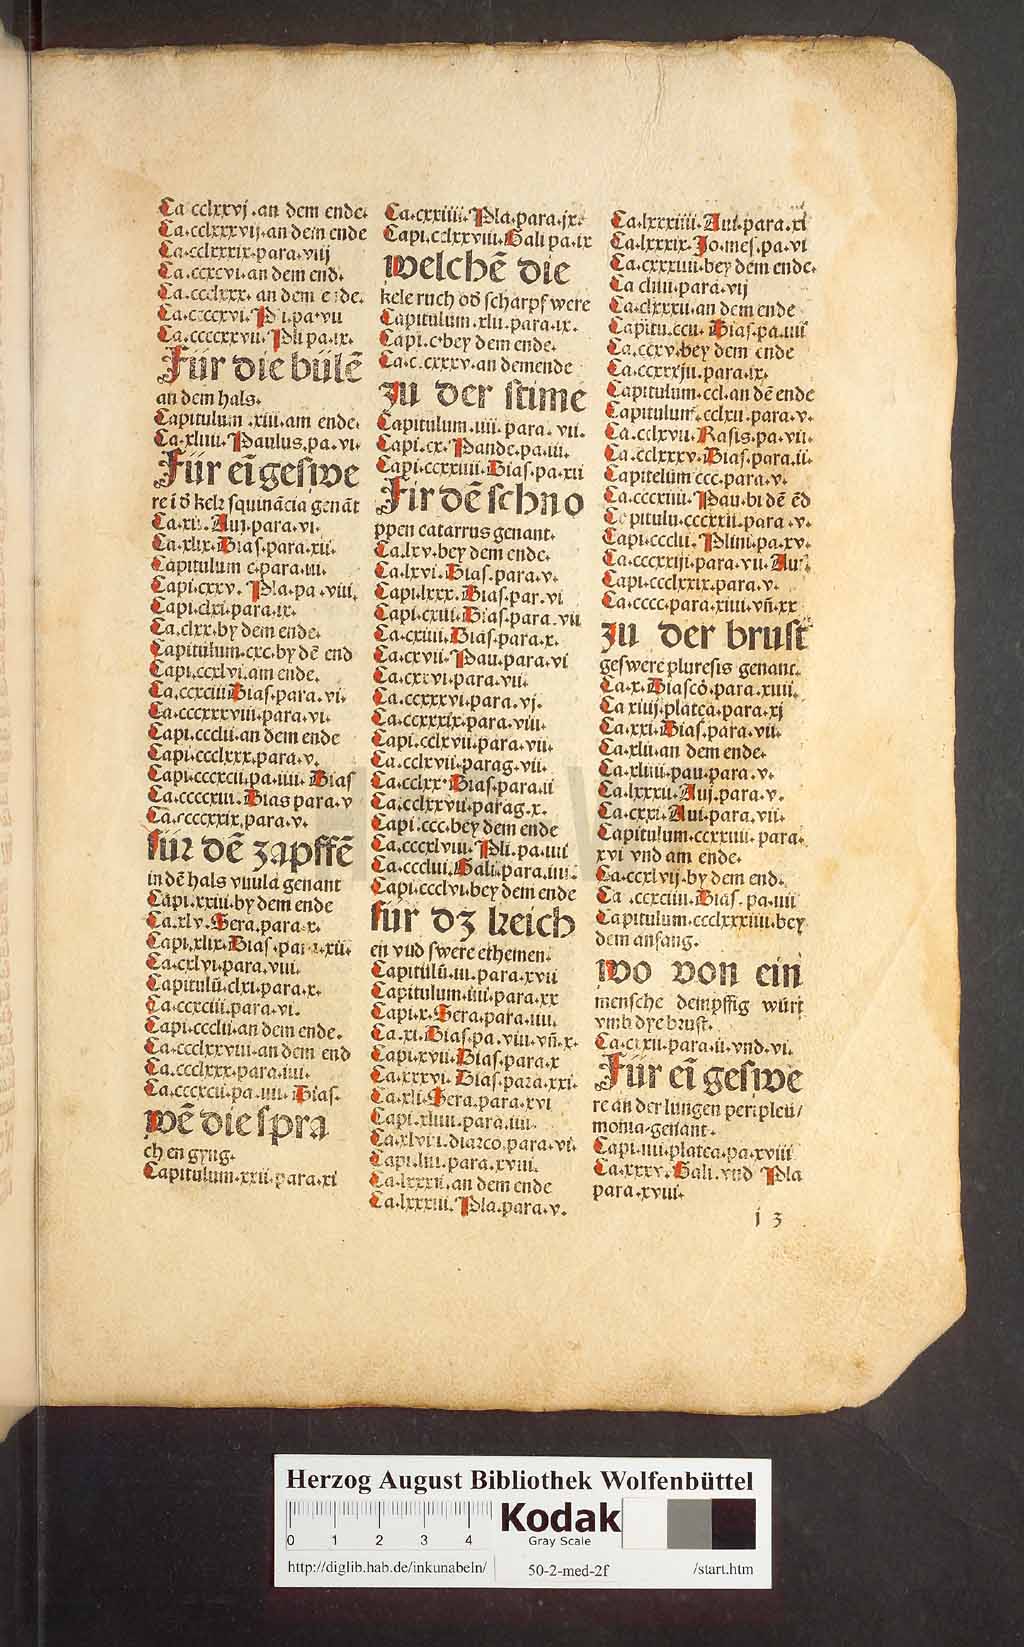 Ca cclxxvj.an dem ende.
Ca.cclxxxvij.an dem ende
Ca.cclxxxix.para.viij
Ca.ccxcvi.an dem end.
Ca.ccclxxx.an dem ende.
Ca.ccccxvi. pa.vii
Ca.ccccxxvii.Pli pa.ix.
Für die bülē
an dem hals.
Capitulum.xiii.am ende.
Ca.xliii.Paulus.pa.vi.
Für eī geswe
re ī d̄ kelr squinācia genāt
Ca.xii.Aui.para.vi.
Ca.xlix.Dias.para.xii.
Capitulum c.para.iii.
Capi.cxv.Pla.pa.viii.
Capi.clxi.para.ix.
Ca.clxx.by dem ende.
Capitulum.cxc.by dē end
Capi.ccxlvi.am ende.
Ca.ccxciii Dias.para.vi.
Ca.cccxxxviii.para.vi.
Capi.ccclii.an dem ende
Capi.ccclxxx.para.v.
Capi.cccxcii.pa.iiii.Dias
Ca.ccccxiii.Dias para.v
Ca.ccccxxix.para.v.
für dē zapffē
in dē hals vuula genant
Capi.xxiii.by dem ende
Ca.xlv.Sera.para.x.
Capi.xlix.Dias.para.xii.
Ca.cxlvi.para.viii.
Capitulū.clxi.para.x.
Ca.ccxciii.para.vi.
Capi.ccclii.an dem ende.
Ca.ccclxxviii.an dem end
Ca.ccclxxx.para.iiii.
Ca.cccxcii.pa.iiii.Dias.
wē die spra
ch en gyng.
Capitulum.xxii.para.xi
Ca.cxxiiii.Pla.para.jx.
Capi.cclxxviii.Gali pa.ix
welchē die
kele ruch od̄ scharpf were
Capitulum.xlii.para.ix.
Capi.c.bey dem ende.
Ca.c.cxxxv.an demende
zu der stime
Capitulum.iiii.para.vii.
Capi.cx.Pande.pa.iii.
Capi.ccxxiiii.Dias.pa.xii
Fir dē schno
ppen catarrus genant.
Ca.lxv.bey dem ende.
Ca.lxvi.Dias.para.v.
Capi.lxxx.Dias.par.vi
Capi.cxiii.Dias.para.vii
Ca.cxiiii.Dias.para.x.
Ca.cxvii.Pau.para.vi
Ca.cxxvi.para.vii.
Ca.ccxxxvi.para.vj.
Ca.ccxxxix.para.viii.
Capi.cclxvii.para.vii.
Ca.cclxvii.parag.vii.
Ca.cclxx.Dias.para.ii
Ca.cclxxvii.parag.x.
Capi.ccc.bey dem ende
Ca.cccxlviii.Pli.pa.iiii
Ca.ccclvi.Gali.para.iiii.
Capi.ccclvi.bey dem ende
für dz keich
en vnd swere ethemen.
Capitulū.iii.para.xvii
Capitulum.iiii.para.xx
Capi.x.Sera.para.iiii.
Ca.xi.Dias.pa.viii.vn̄.x.
Capi.xvii.Dias.para.x
Ca.xxxvi.Dias.para.xxi.
Ca.xli.Sera.para.xvi
Capi.xliiii.para.iiii.
Ca.xlvii.diasco.para.vi.
Capi.liii.para.xviii.
Ca.lxxxii.an dem ende
Ca.lxxxiii.Pla.para.v.
Ca.lxxxiiii.Aui.para.xi
Ca.lxxxix.Jo.mes.pa.vi
Ca.cxxxiiii.bey dem ende.
Ca cliiii.para.vij
Ca.clxxxii.an dem ende
Capitu.ccii.Dias.pa.iiii
Ca.ccxv.bey dem ende
Ca.ccxxxjii.para.ix.
Capitulum.ccl.an dē ende
Capitulum.cclxii.para.v.
Ca.cclxvii.Rasis.pa.vii.
Ca.cclxxxv.Dias.para.ii.
Capitelum ccc.para.v.
Ca.cccxiiii.Pau.bi dē ēd
Capitulu.cccxxii.para.v.
Capi.ccclii.Plini.pa.xv.
Ca.cccxxiji.para.vii.Aui.
Capi.ccclxxix.para.v.
Ca.cccc.para.xiiii.vn̄.xx
zu der brust
geswere pluresis genant.
Ca.x.Diascō.para.xiiii.
Ca xiiij.platea.para.xj
Ca.xxi.Dias.para.vii.
Ca.xlii.an dem ende.
Ca.xliiii.pau.para.v.
Ca.lxxxii.Auj.para.v.
Ca.cxxi.Aui.para.vii.
Capitulum.ccxxiiii.para.
xvi vnd am ende.
Ca.ccxlvij.by dem end.
Ca.ccxciiii.Dias.pa.iiii
Capitulum.ccclxxxiiii.bey
dem anfang.
wo von ein
mensche dempffig würt
vmb dye brust.
Ca.cixii.para.ii.vnd.vi.
Für eī geswe
re an der lungen peripleu/
monia.genant.
Capi.iiii.platea.pa.xviii
Ca.xxxv.Gali.vnd Pla
para.xviii.
i 3
Herzog August Bibliothek Wolfenbüttel
0 1 2 3 4
Kodak
Gray Scale
http://diglib.hab.de/inkunabeln/ 50-2-med-2f /start.htm